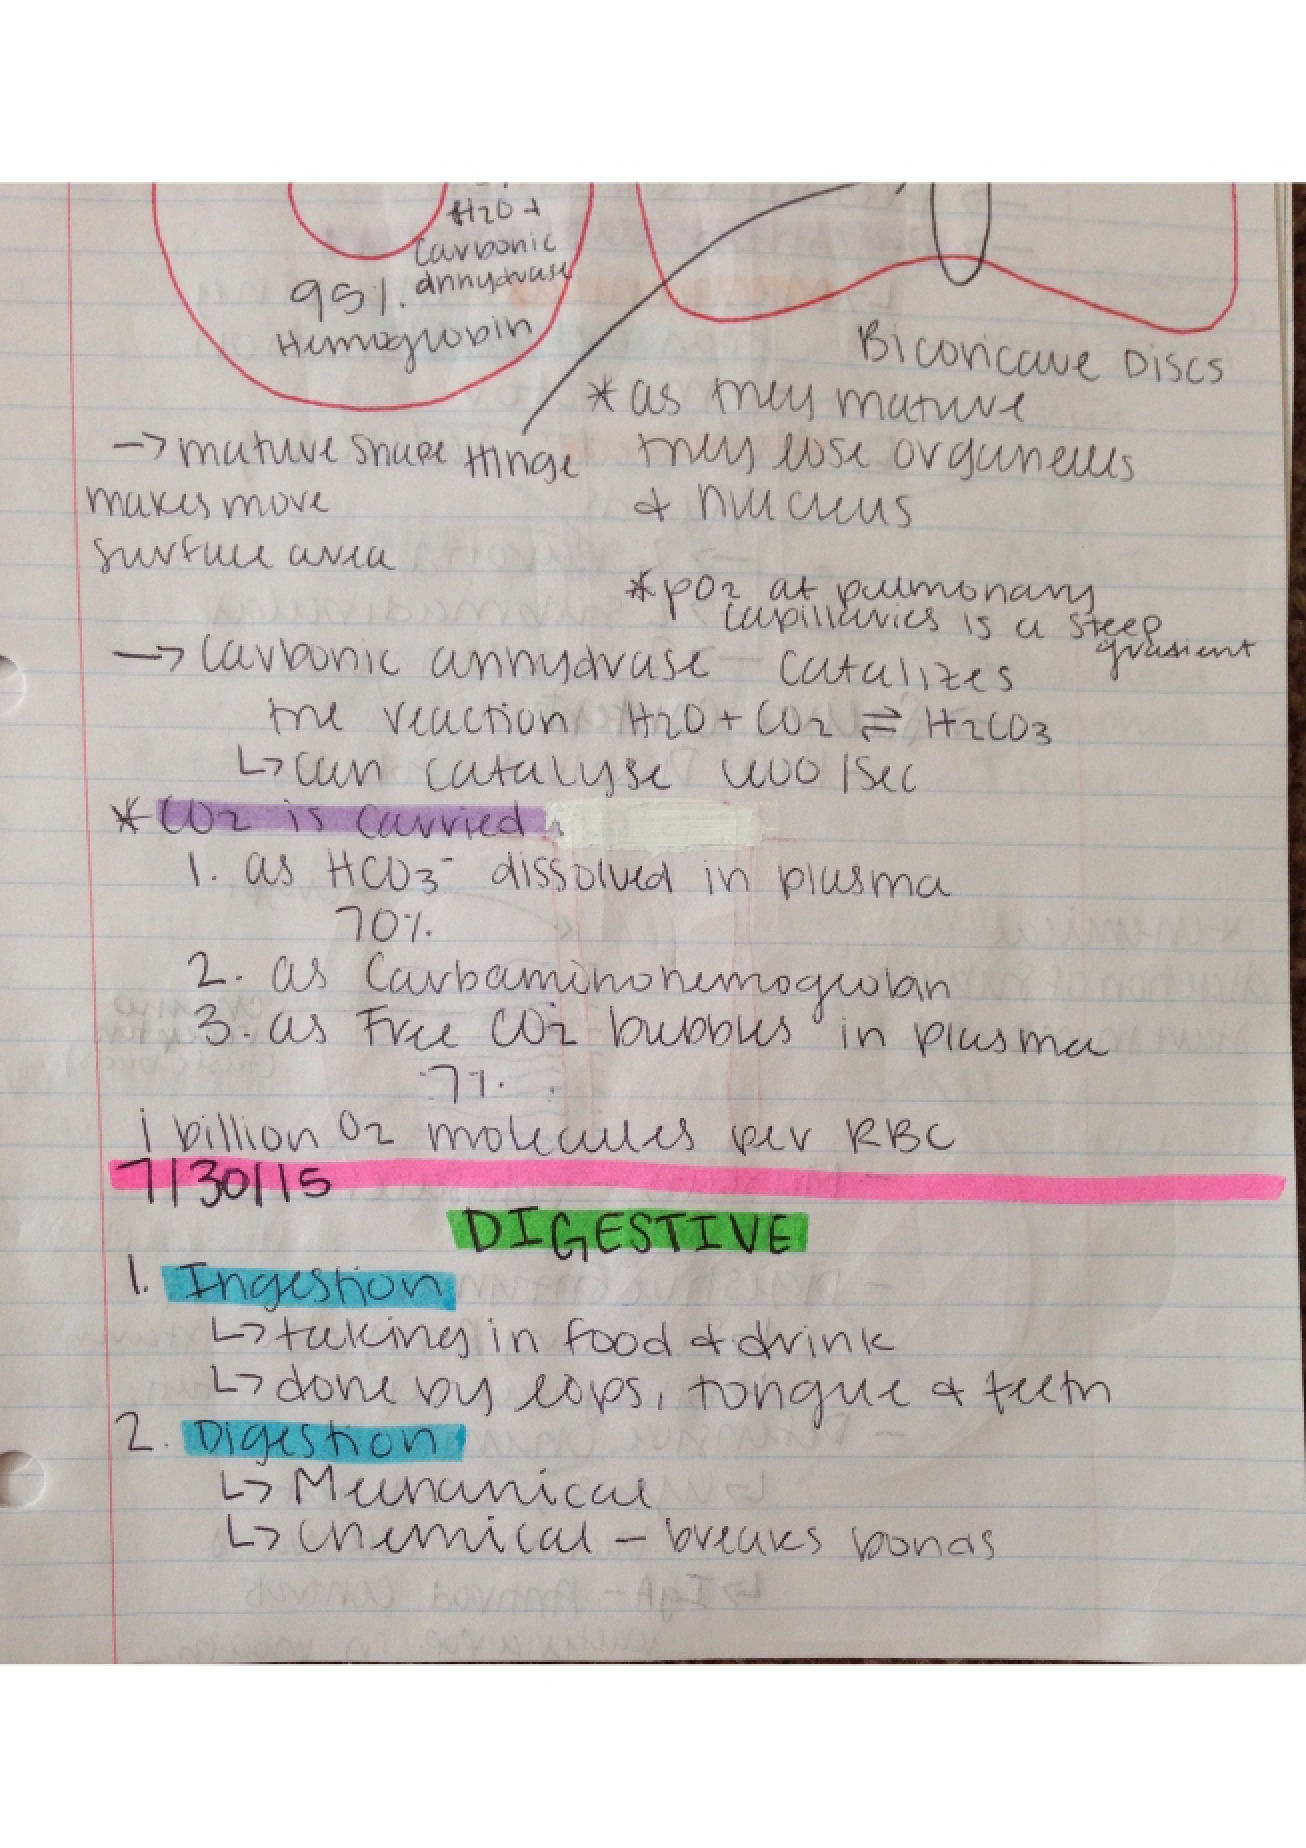 H2O +
Carbonic
annhydrase
95%.
Hemoglobin
Biconcave Discs
* as they mature
they lose organelles
& nucleus
→ mature shape
makes more
surface area
Hinge
* pO2 at pulmonary
capillaries is a steep
gradient
→ Carbonic annhydrase – Catalizes
the reaction H2O + CO2 ⇌ H2CO3
↳ can catalyse /sec
* CO2 is carried
1. as HCO3⁻ dissolved in plasma
70%.
2. as Carbaminohemoglobin
3. as Free CO2 bubbles in plasma
7%.
1 billion O2 molecules per RBC
7/30/15
DIGESTIVE
1. Ingestion
↳ taking in food & drink
↳ done by , tongue & teeth
2. Digestion
↳ Mechanical
↳ Chemical – breaks bonds